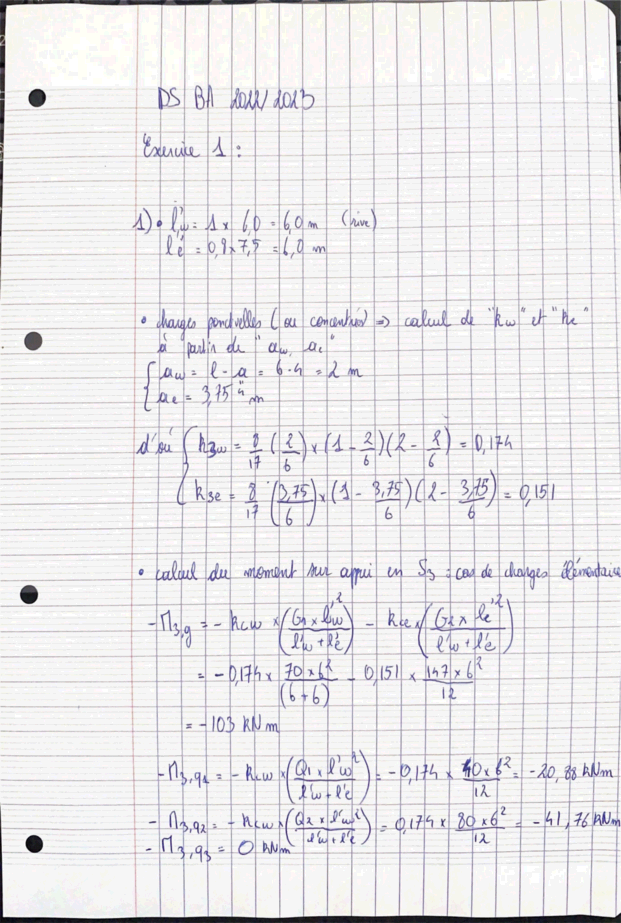 DS BA 2022/2023
Exercice 1 :
1) • l'w = 1 x 6,0 = 6,0 m (rive)
l'e = 0,8 x 7,5 = 6,0 m
• charges ponctuelles (ou concentrés) => calcul de "kw" et "ke"
à partir de "aw, ae"
{ aw = l - a = 6 - 4 = 2 m
ae = 3,75 m
d'où { k3w = 8/17 (2/6) x (1 - 2/6)(2 - 2/6) = 0,174
k3e = 8/17 (3,75/6) x (1 - 3,75/6)(2 - 3,75/6) = 0,151
• calcul du moment sur appui en S3 : cas de charges élémentaire
- M3,g = - kcw x (G1 x l'w²/(l'w + l'e)) - kce x (G2 x le'²/(l'w + l'e))
= - 0,174 x 70 x 6²/(6+6) - 0,151 x 147 x 6²/12
= - 103 kN m
- M3,q1 = - kcw x (Q1 x l'w²/(l'w + l'e)) = - 0,174 x 40 x 6²/12 = - 20,88 kNm
- M3,q2 = - kcw x (Q2 x l'w²/(l'w + l'e)) = 0,174 x 80 x 6²/12 = - 41,76 kNm
- M3,q3 = 0 kNm